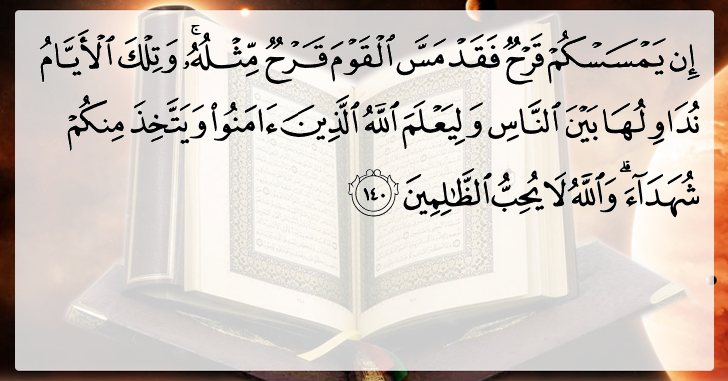 إِن يَمْسَسْكُمْ قَرْحٌ فَقَدْ مَسَّ ٱلْقَوْمَ قَرْحٌ مِّثْلُهُۥ ۚ وَتِلْكَ ٱلْأَيَّامُ
نُدَاوِلُهَا بَيْنَ ٱلنَّاسِ وَلِيَعْلَمَ ٱللَّهُ ٱلَّذِينَ ءَامَنُوا۟ وَيَتَّخِذَ مِنكُمْ
شُهَدَآءَ ۗ وَٱللَّهُ لَا يُحِبُّ ٱلظَّٰلِمِينَ ١٤٠